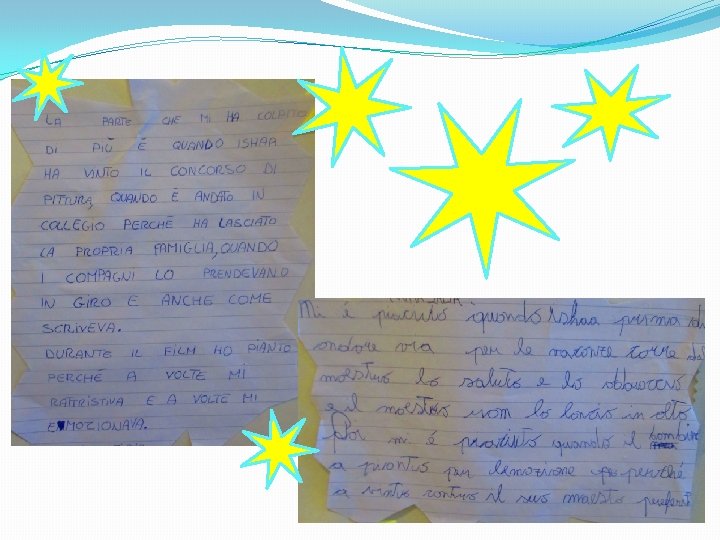 LA PARTE CHE MI HA COLPITO
DI PIÙ È QUANDO ISHAA
HA VINTO IL CONCORSO DI
PITTURA, QUANDO È ANDATO IN
COLLEGIO PERCHÉ HA LASCIATO
LA PROPRIA FAMIGLIA, QUANDO
I COMPAGNI LO PRENDEVANO
IN GIRO E ANCHE COME
SCRIVEVA.
DURANTE IL FILM HO PIANTO
PERCHÉ A VOLTE MI
RATTRISTIVA E A VOLTE MI
EMOZIONAVA.
Mi è piaciuto quando Ishaa prima di
andare via per le vacanze corre dal
maestro lo saluta e lo
e il maestro lo lancia in alto
Poi mi è piaciuto quando il bambino
a pianto per perché
a vinto contro il suo maestro